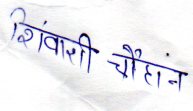 शिवांशी चौहान